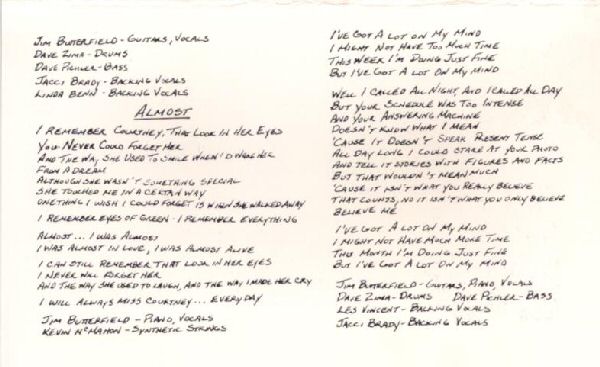 Jim Butterfield - Guitars, Vocals
Dave Zima - Drums
Dave Pichler - Bass
Jacci Brady - Backing Vocals
Linda Benn - Backing Vocals
Almost
I Remember Courtney, That Look in Her Eyes
You Never Could Forget Her
And the Way She Used to Smile When I'd Wake Her
From a Dream
Although She Wasn't Something Special
She Touched Me in a Certain Way
One Thing I Wish I Could Forget is When She Walked Away
I Remember Eyes of Green - I Remember Everything
Almost... I Was Almost
I Was Almost in Love, I Was Almost Alive
I Can Still Remember That Look in Her Eyes
I Never Will Forget Her
And the Way She Used to Laugh, and the Way I Made Her Cry
I Will Always Miss Courtney... Every Day
Jim Butterfield - Piano, Vocals
Kevin McMahon - Synthetic Strings
I've Got A Lot on My Mind
I Might Not Have Too Much Time
This Week I'm Doing Just Fine
But I've Got A Lot on My Mind
Well I Called All Night, And I Called All Day
But Your Schedule Was Too Intense
And Your Answering Machine
Doesn't Know What I Mean
'Cause It Doesn't Speak Present Tense
All Day Long I Could Stare at Your Photo
And Tell It Stories With Figures and Facts
But That Wouldn't Mean Much
'Cause It Isn't What You Really Believe
That Counts, No It Isn't What You Only Believe
Believe Me
I've Got A Lot on My Mind
I Might Not Have Much More Time
This Month I'm Doing Just Fine
But I've Got A Lot on My Mind
Jim Butterfield - Guitars, Piano, Vocals
Dave Zima - Drums Dave Pichler - Bass
Les Vincent - Backing Vocals
Jacci Brady - Backing Vocals